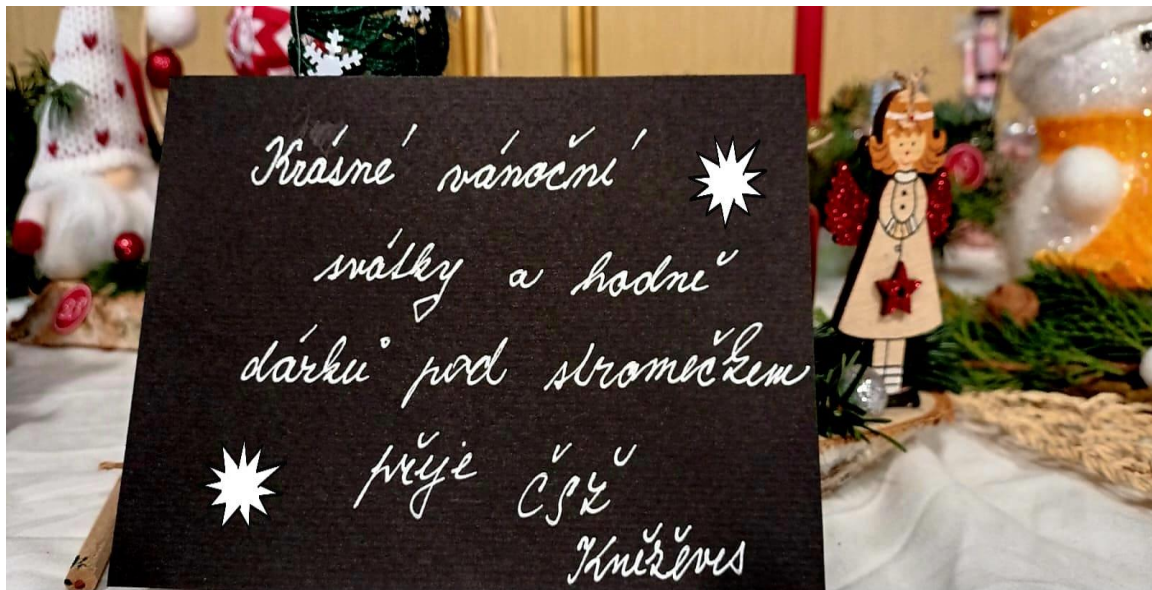 Krásné vánoční
svátky a hodně
dárků pod stromečkem
přeje ČSŽ
Kněževes